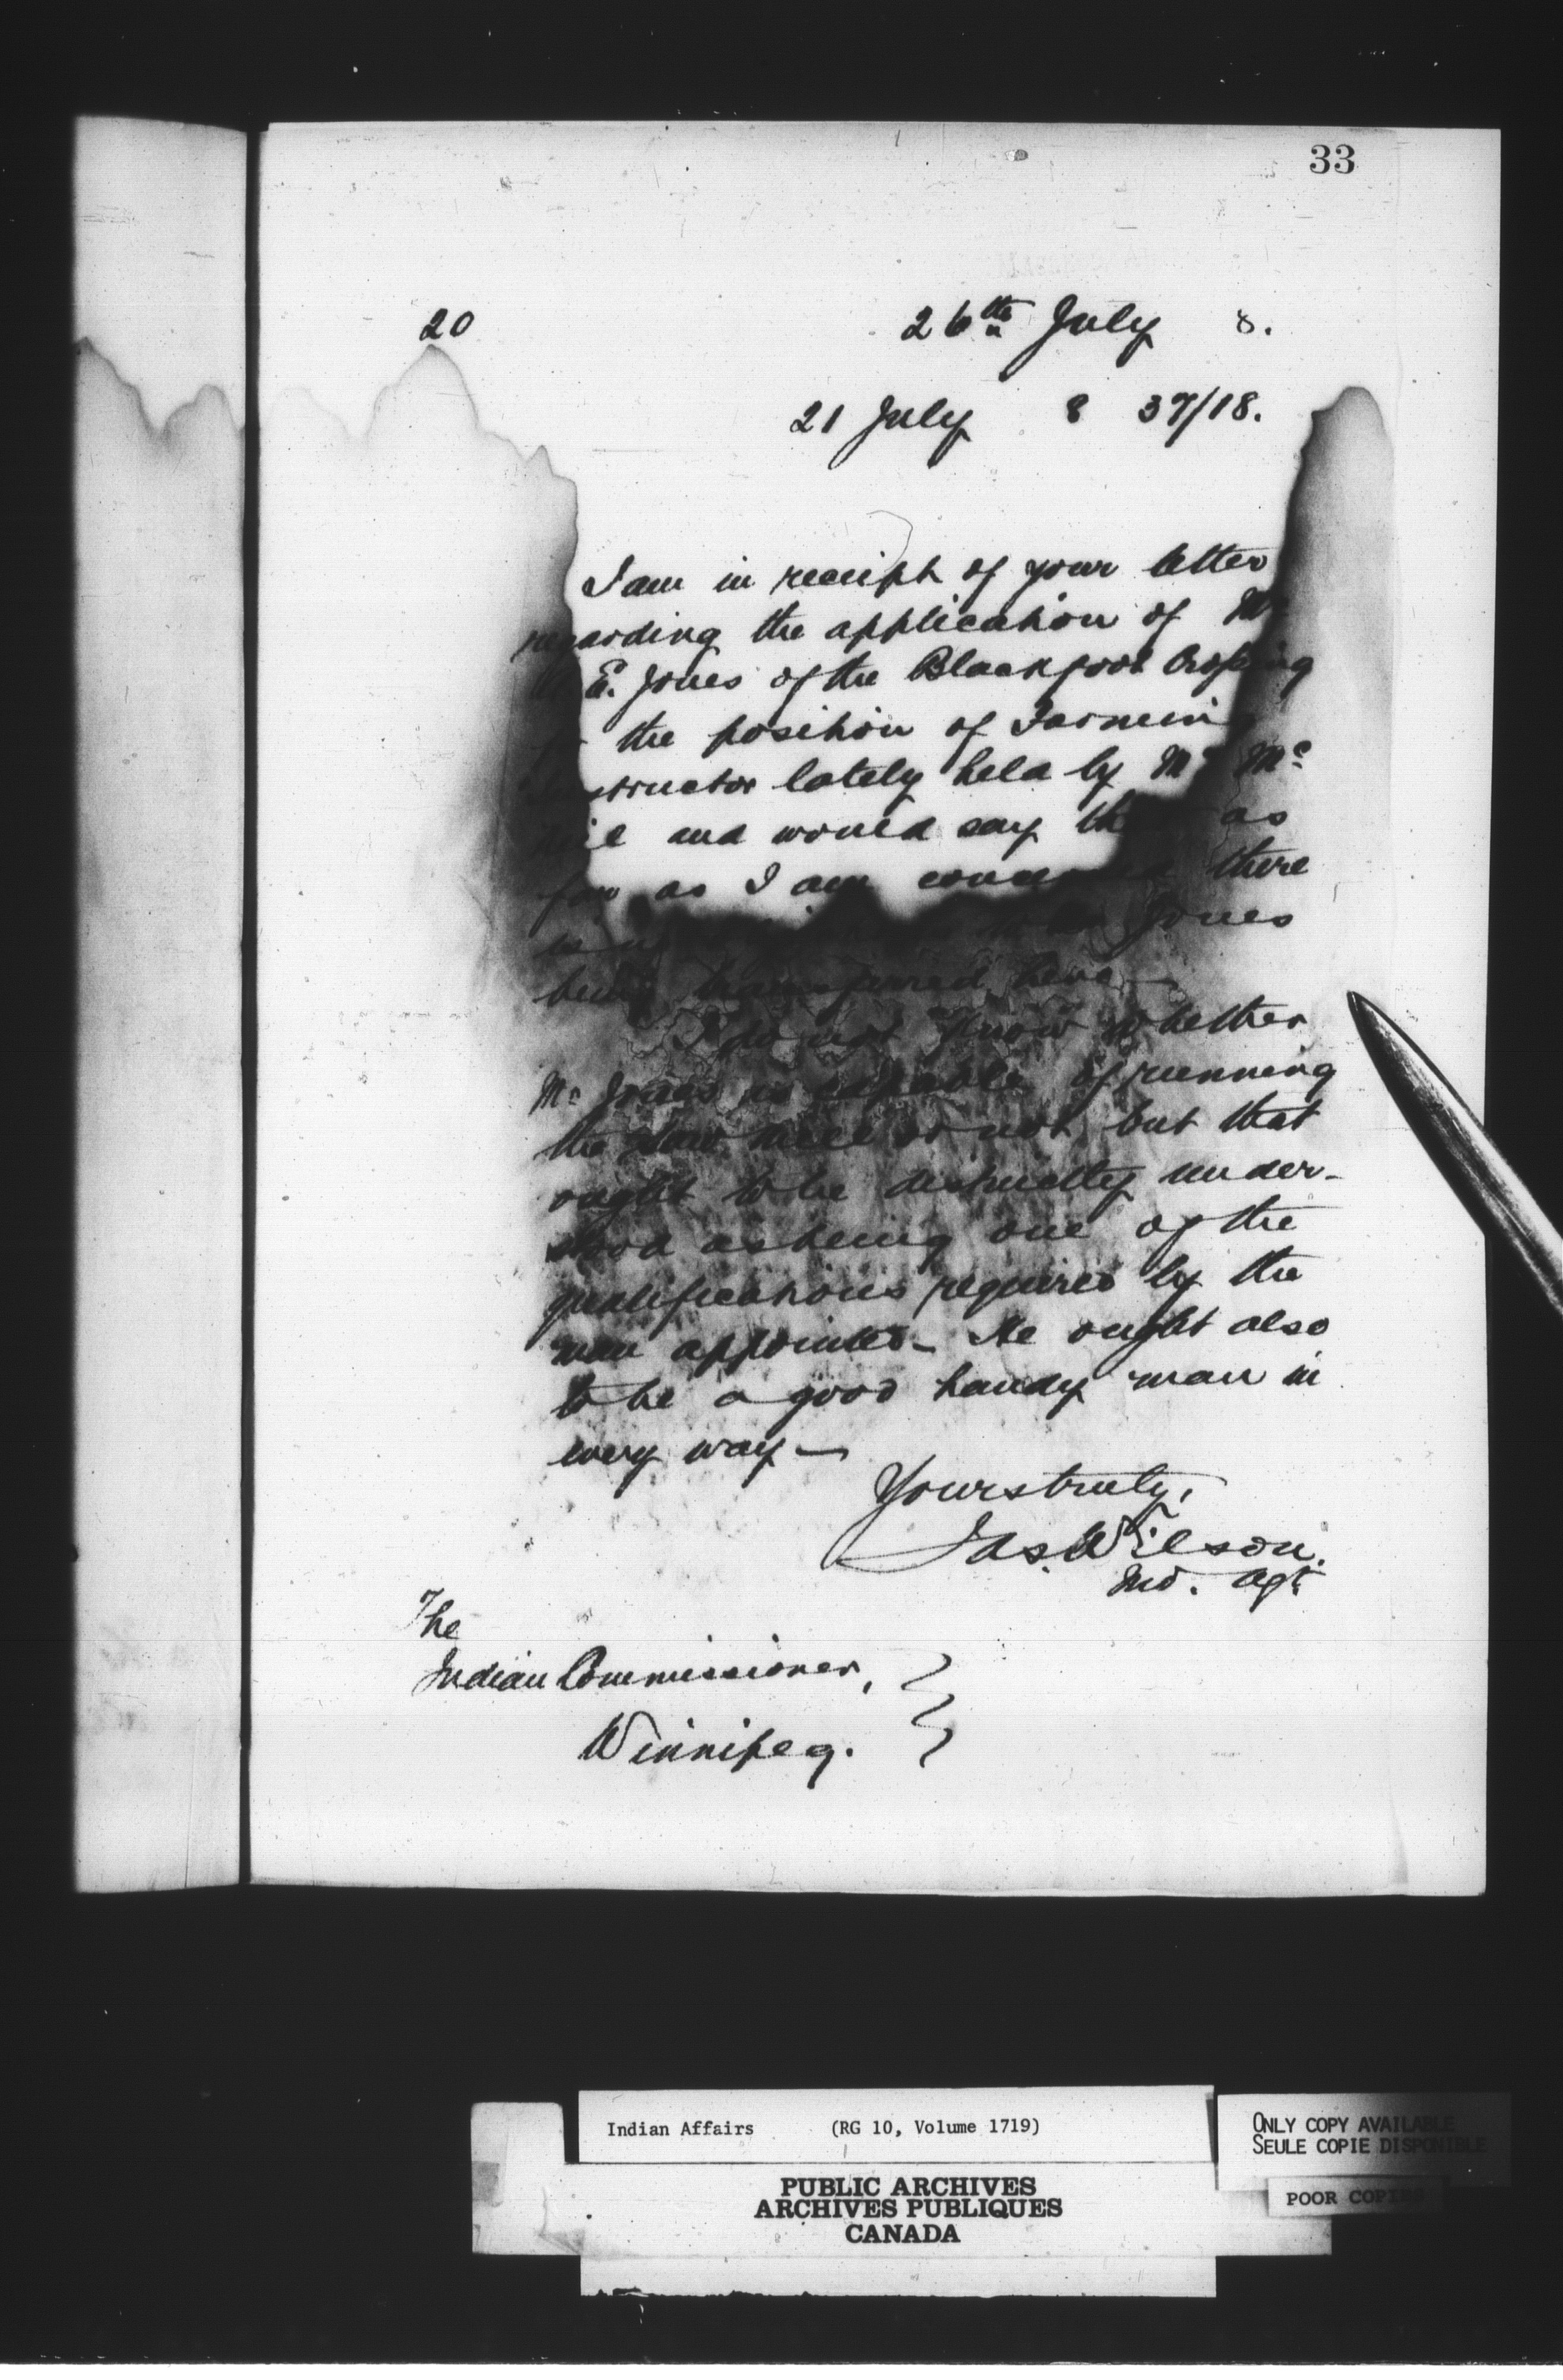 33
20 26th July 8.
21 July 8 37/18.
I am in receipt of your letter
regarding the application of Mr
E. Jones of the Blackfoot Crossing
the position of Farming
structor lately held by Mr Mc
and would say that as
far as I am concerned there
Jones
being transferred here
I do not know whether
Mr Jones is capable of running
the saw mill or not, but that
ought to be distinctly under-
stood as being one of the
qualifications required by the
man appointed - He ought also
to be a good handy man in
every way -
Yours truly,
Jas. Wilson.
Ind. Agt.
The
Indian Commissioner,
Winnipeg.
Indian Affairs (RG 10, Volume 1719)
PUBLIC ARCHIVES
ARCHIVES PUBLIQUES
CANADA
ONLY COPY AVAILABLE
SEULE COPIE DISPONIBLE
POOR COPIES